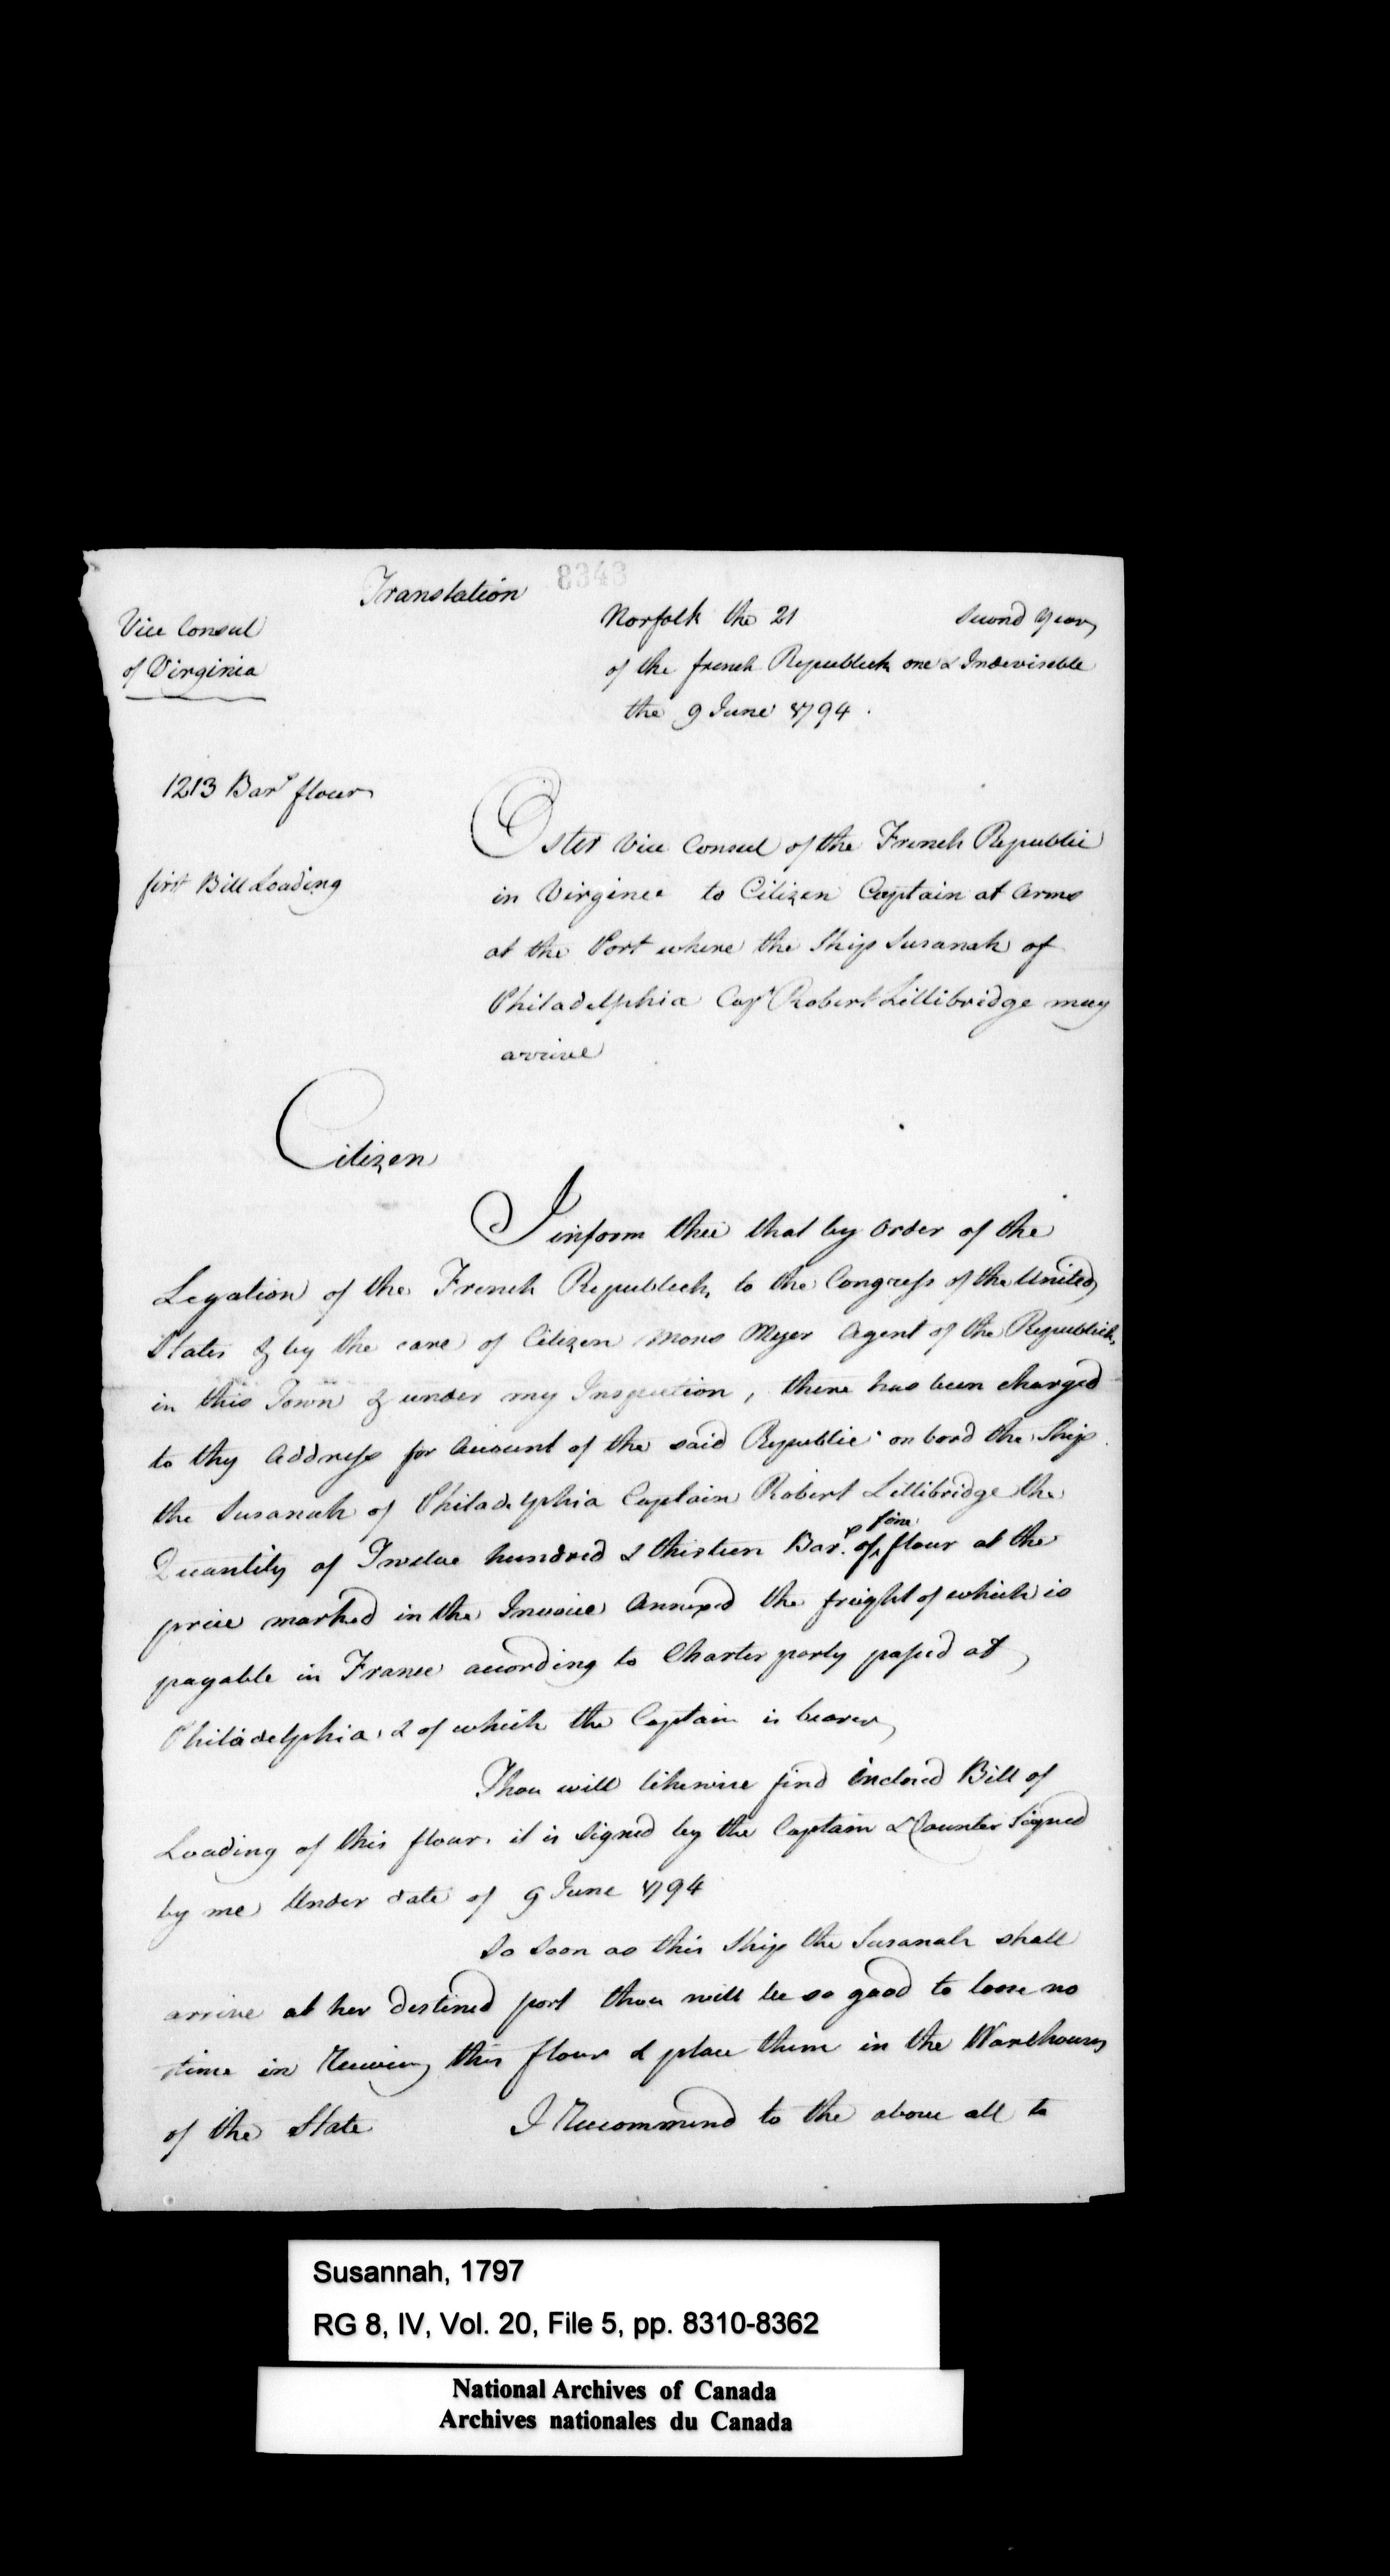 Translation 8343
Vice Consul
of Virginia
Norfolk the 21 Second Year
of the french Republick one & Indevisible
the 9 June 1794.
1213 Bar.s flour
first Bill Loading
Oster Vice Consul of the French Republic
in Virginee to Citizen Captain at Arms
at the Port where the Ship Susanah of
Philadelphia Cap.t Robert Lillibridge may
arrive
Citizen
I inform thee that by Order of the
Legation of the French Republeck, to the Congress of the United
States & by the care of Citizen Mons Meyer Agent of the Republick,
in this Town & under my Inspection, there has been charged
to thy Address for Account of the said Republic on bord the Ship
the Susanah of Philadelphia Captain Robert Lillibridge the
Quantity of Twelve hundred & thirteen Bar.s of fine flour at the
price marked in the Invoice Annexed the freight of which is
payable in France according to Charter party passed at
Philadelphia, & of which the Captain is bearer
Thou will likewise find inclosed Bill of
Loading of this flour. it is Signed by the Captain & Counter Signed
by me Under date of 9 June 1794
So Soon as this Ship the Susanah shall
arrive at her destined port thou will be so good to loose no
time in Receiving this flour & place them in the Warehouses
of the State I Recommend to the above all to
Susannah, 1797
RG 8, IV, Vol. 20, File 5, pp. 8310-8362
National Archives of Canada
Archives nationales du Canada